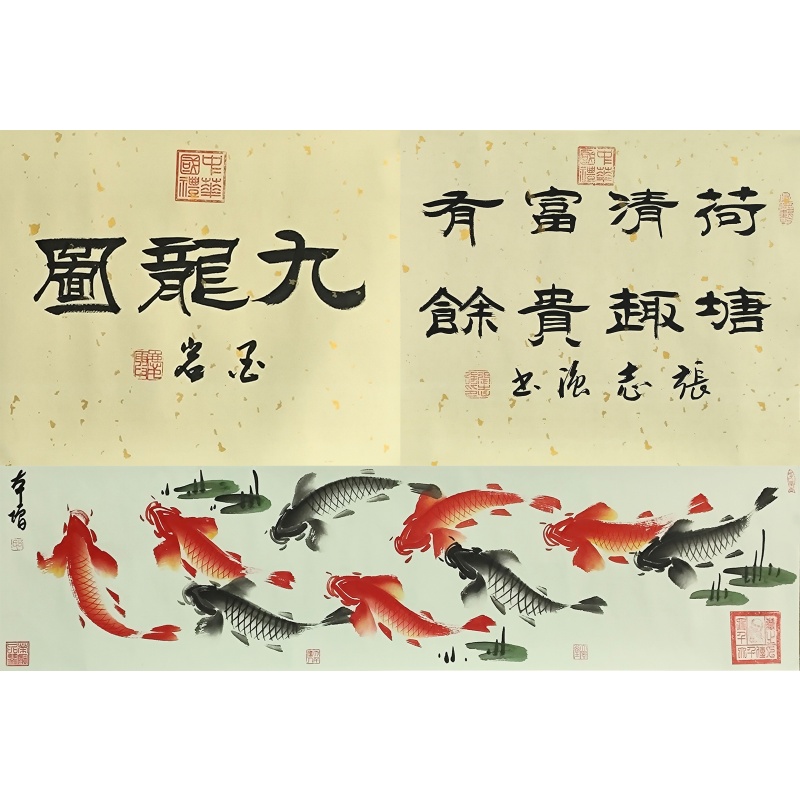 中華國禮
九龍圖
岩
中華國禮
荷塘
清趣
富貴
有餘
張志強書
本增